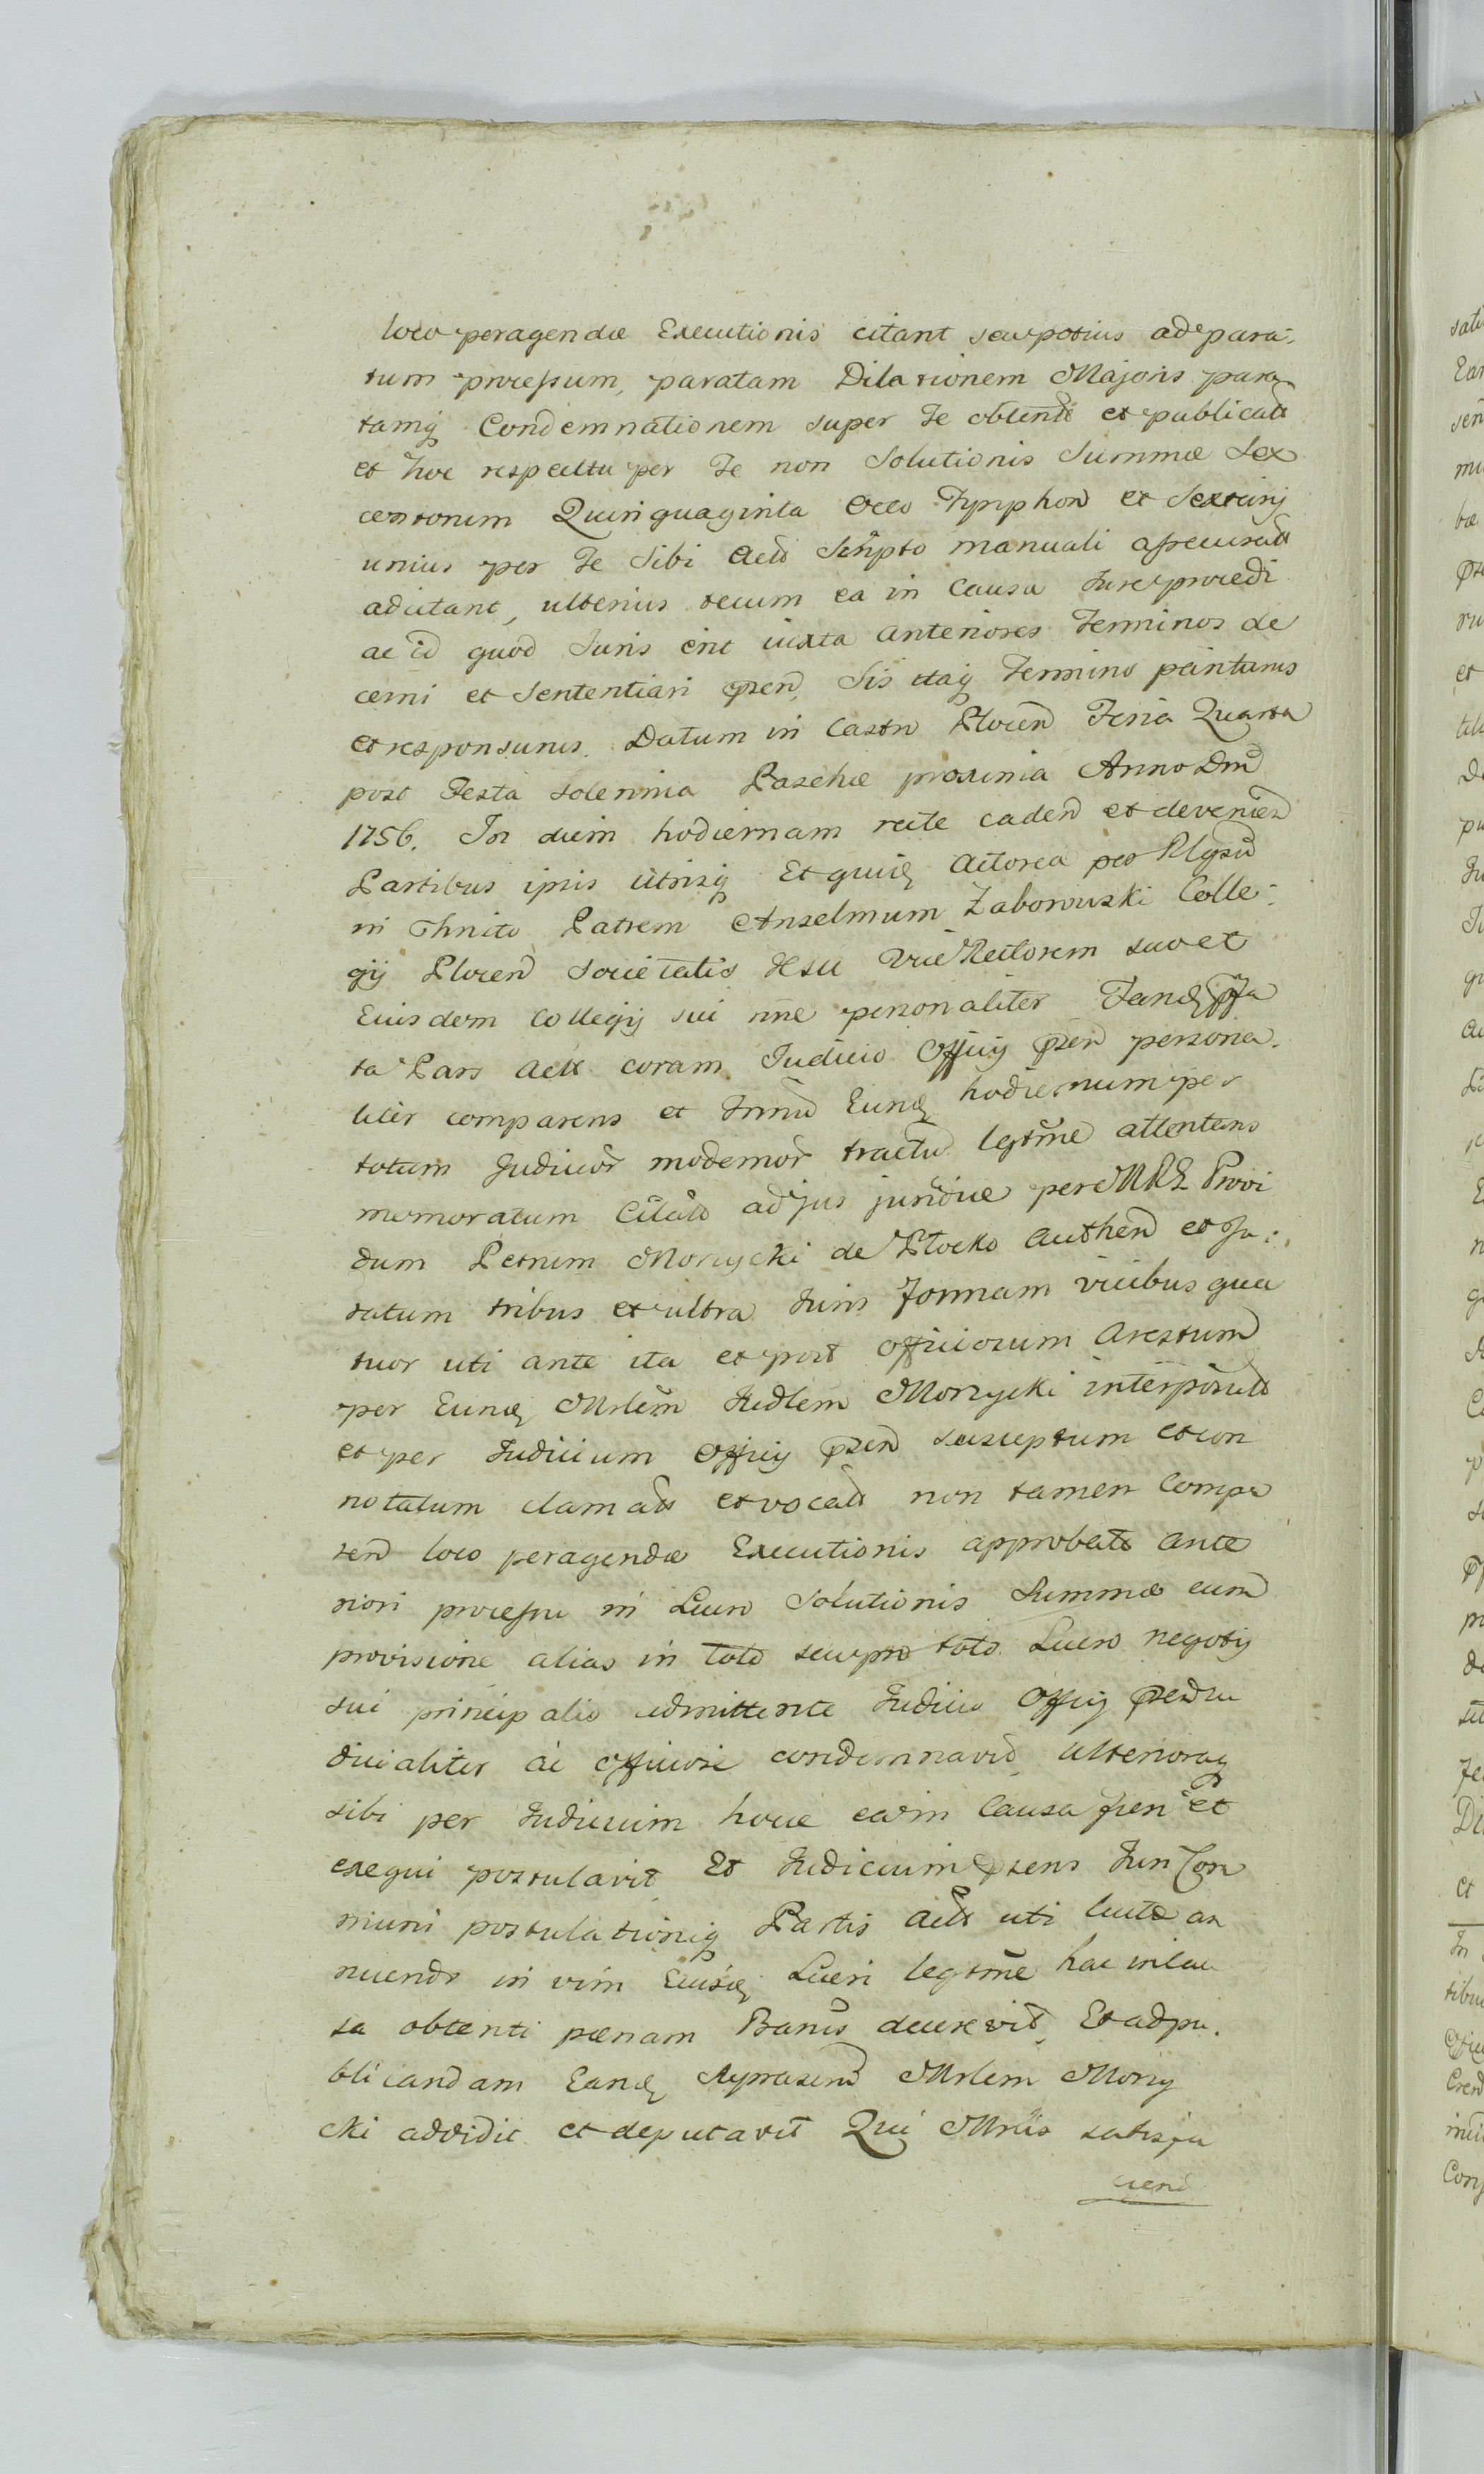 loco peragendæ Executionis citant seu potius ad para-
tum processum, paratam Dilationem Majoris para
tamq Condemnationem super Te obtent et publicat
et hoc respectu per Te non Solutionis Summæ Sex
centorum Quinquaginta Octo Tynphon et Sextarij
unius per Te Sibi Act Scripto manuali assecurat
adcitant, ulterius tecum ea in Causa Jure procedi
ac id quod Juris erit iuxta anteriores Terminos de
cerni et Sententiari pñen, Sis itaq Termino paritturus
et responsurus. Datum in Castro Plocen Feria Quarta
post Festa Solennia Paschæ proxima Anno Dni
1756. In diem hodiernam recte caden et devenien
Partibus ipsis utrisq Et quidem Actorea per Rlgsu
in Chrito Patrem Anselmum Zaborowski Colle-
gij Plocen Societatis Jesu Vice Rectorem suo et
Eiusdem Collegij sui nne personaliter Tandem præfa
ta Pars Act coram Judicio Officij pñen persona-
liter comparens et Trmnu Eund hodiernum per
totum Judicior modernor tractu legtme attentans
memoratum Citat ad jus juridice per MRL Provi
dum Petrum Morzycki de Plocko authen et Ju-
ratum tribus et ultra Juris formam vicibus qua
tuor uti ante ita et post officiosum arestum
per Eund Mrlem Judlem Morzycki interposit
et per Judicium Officij pñen susceptum et con
notatum clamat et vocat non tamen Compa
ren loco peragendæ Executionis approbato ante
riori processu in Lucro Solutionis Summæ cum
provisione alias in toto seu pro toto Lucro negotij
sui principalis admittente Judicio Officij pñen Ju
dicialiter ac officiose condemnavit, ulterioraq
sibi per Judicium hocce ea in Causa fieri et
exequi postulavit, Et Judicium pñens Juri Com
muni postulationiq Partis Act uti iustæ an
nuendo in vim Eiusd Lucri legtme hac in Cau
sa obtenti pœnam Bannis decrevit, Et ad pu-
blicandam Eand repræsent Mrlem Morzy
cki addidit et deputavit Qui Mrlis satisfa
cien